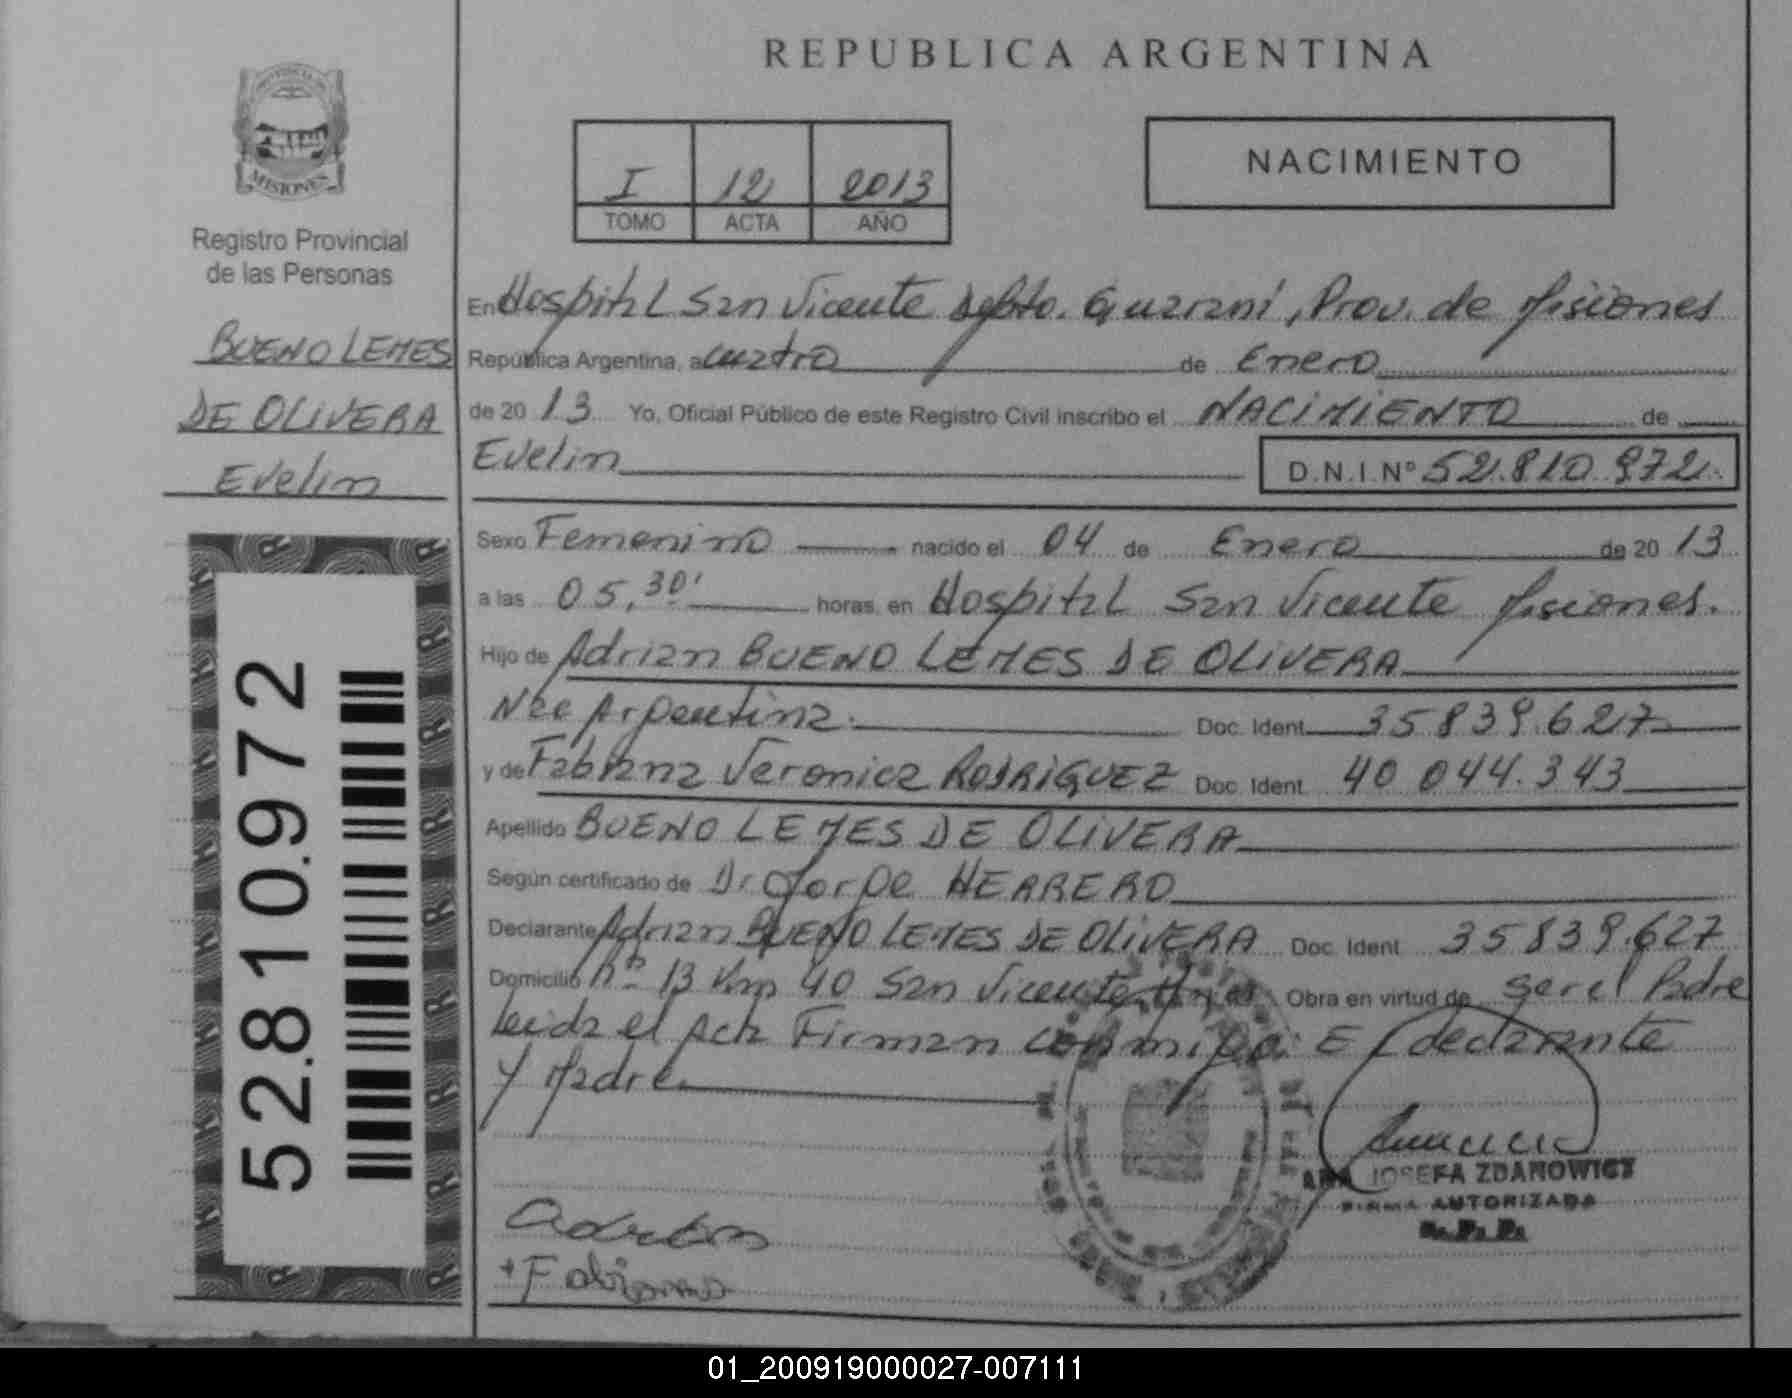 REPUBLICA ARGENTINA
MISIONES
Registro Provincial
de las Personas
BUENO LEMES
DE OLIVERA
Evelin
52.810.972
I 12 2013
TOMO ACTA AÑO
NACIMIENTO
En Hospital San Vicente Depto. Guarani, Prov. de Misiones
República Argentina, a cuatro de Enero
de 20 13 Yo, Oficial Público de este Registro Civil inscribo el NACIMIENTO de
Evelin D.N.I. Nº 52.810.972.
Sexo Femenino nacido el 04 de Enero de 20 13
a las 05,30' horas, en Hospital San Vicente Misiones.
Hijo de Adrian BUENO LEMES DE OLIVERA
Nac Argentina. Doc. Ident. 35839.627
y de Fabiana Veronica RODRIGUEZ Doc. Ident. 40 044.343
Apellido BUENO LEMES DE OLIVERA
Según certificado de Dr Jorge HERRERO
Declarante Adrian BUENO LEMES DE OLIVERA Doc. Ident. 35839.627
Domicilio Nº 13 Km 40 San Vicente Obra en virtud de ser el Padre
Leida el Acta Firman conmigo: El declarante
y Madre
Adrian
+Fabiana
ANA JOSEFA ZDANOWICZ
FIRMA AUTORIZADA
R.P.P.
01_200919000027-007111